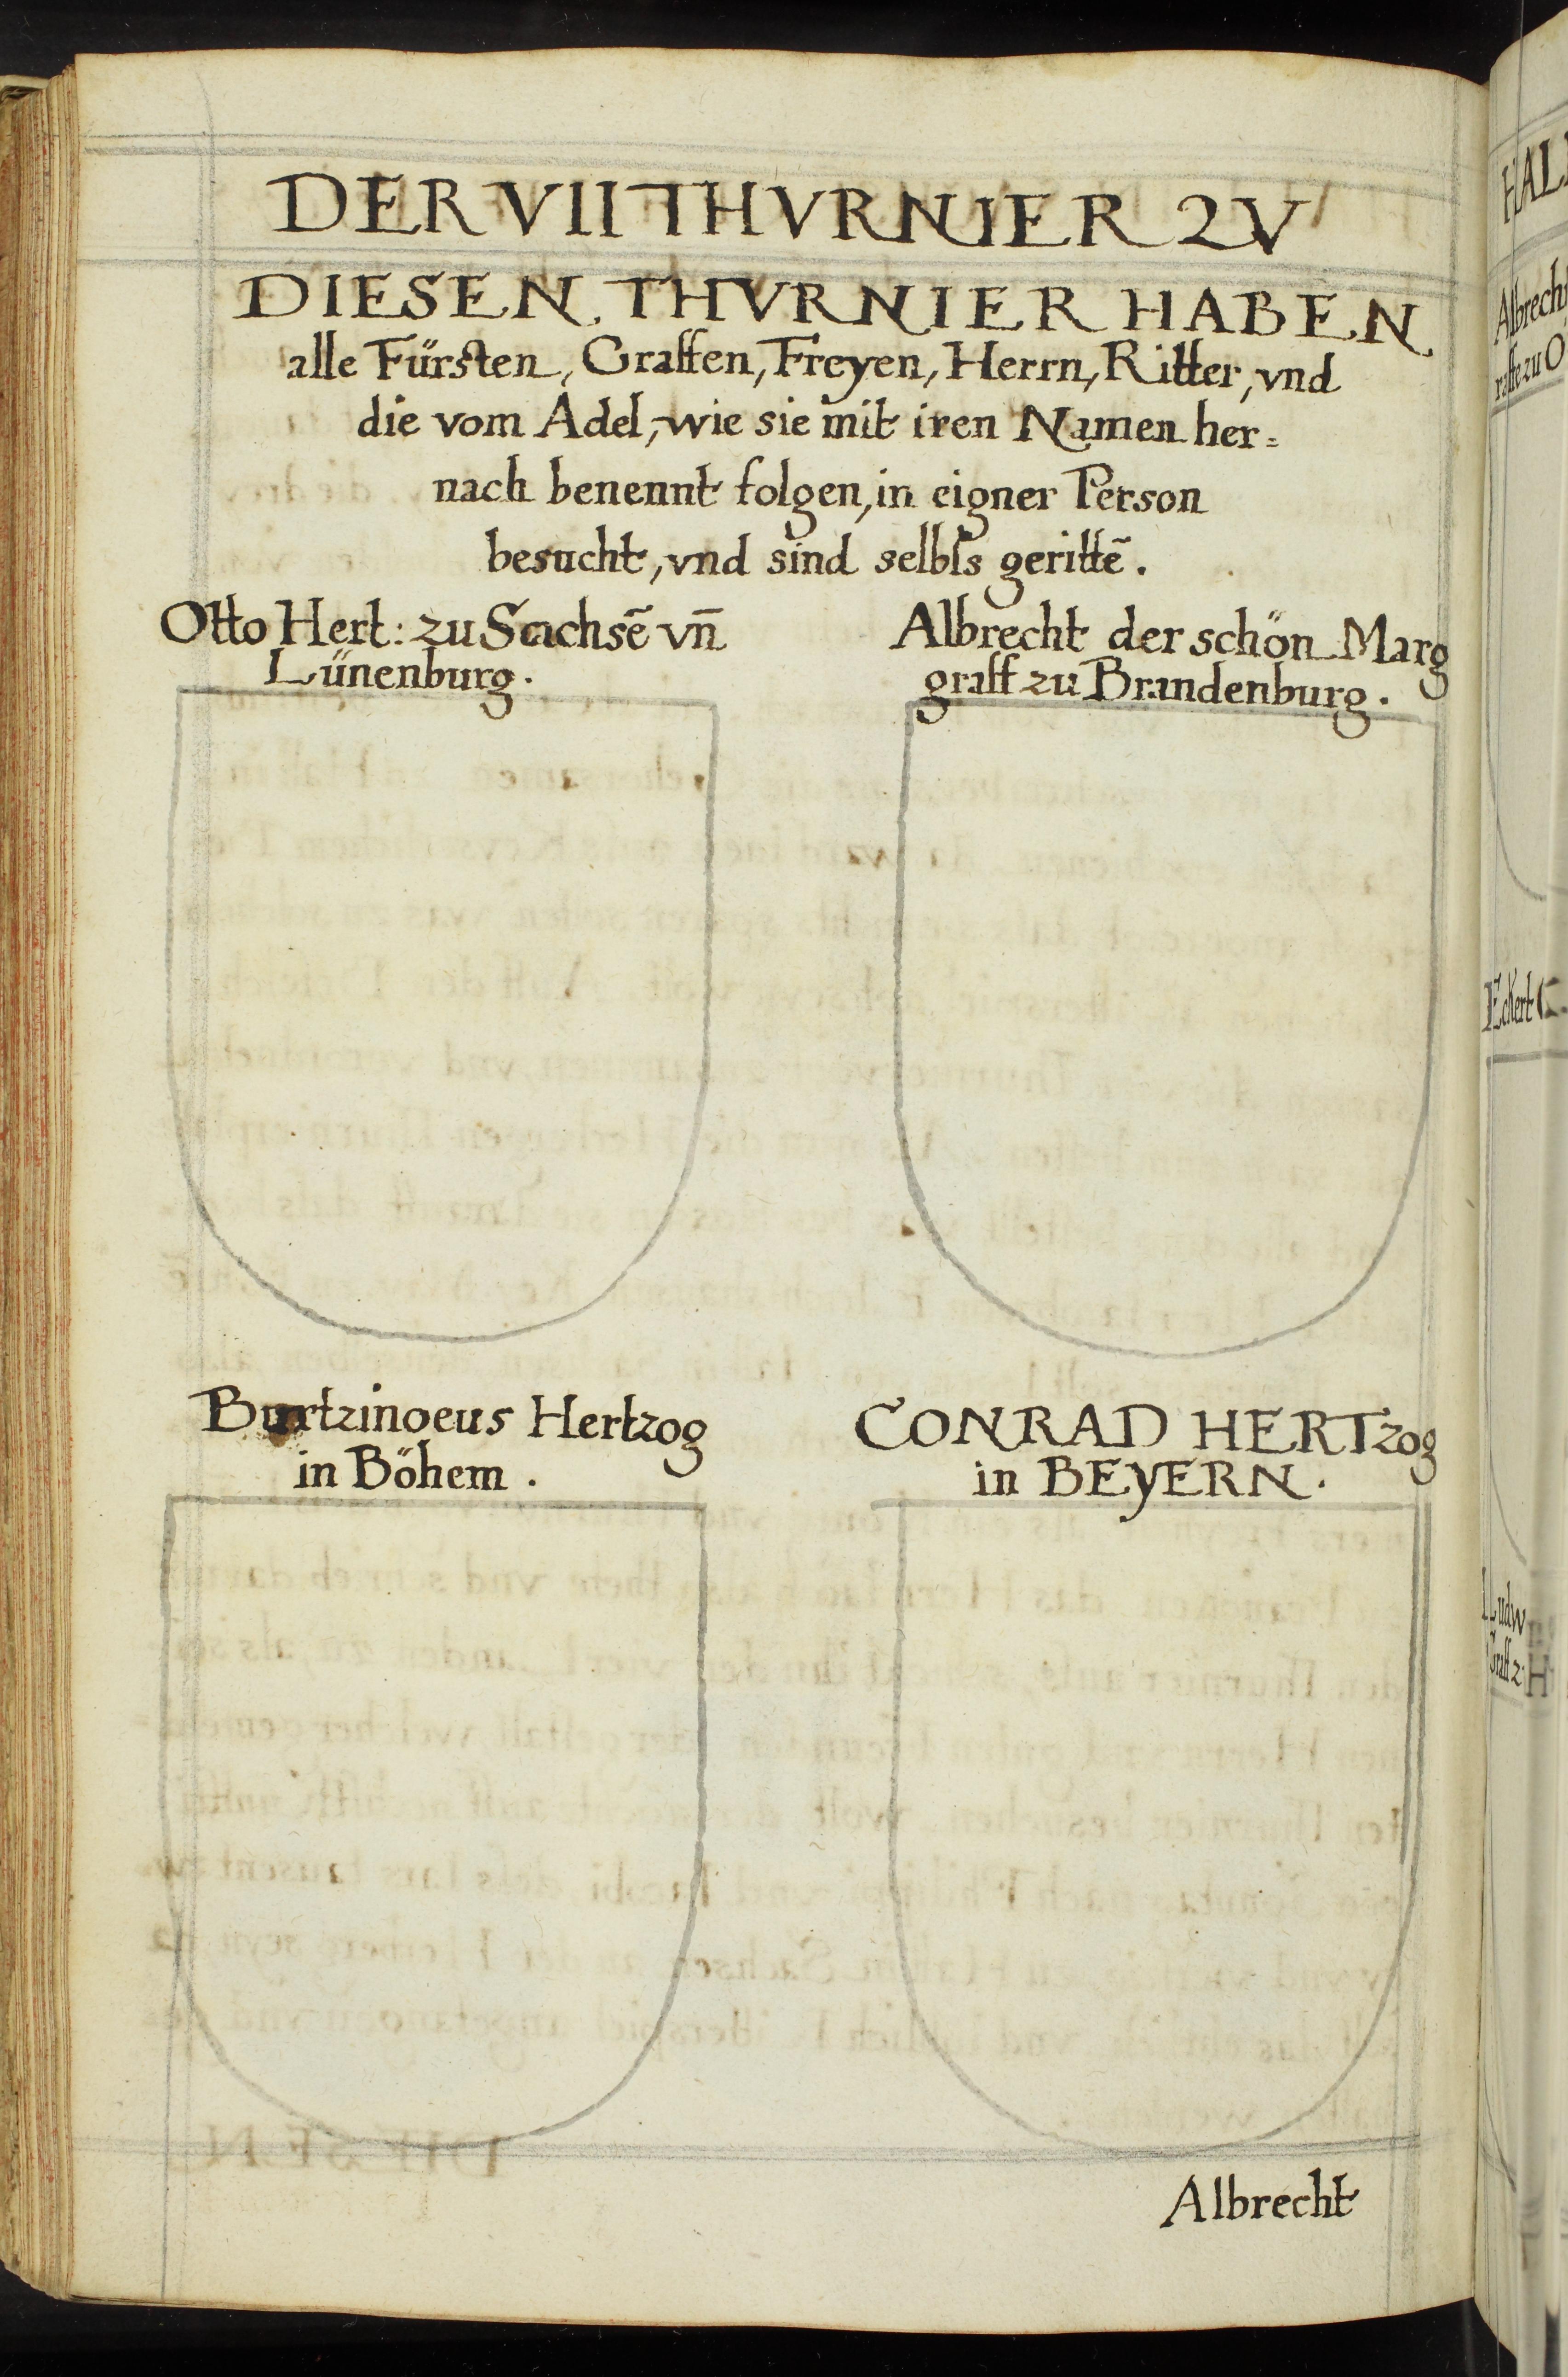 DER VII THVRNIER ZV
DIESEN THVRNIER HABEN
alle Fürsten, Graffen, Freyen, Herrn, Ritter, vnd
die vom Adel, wie sie mit iren Namen her=
nach benennt folgen, in eigner Person
besucht, vnd sind selbls gerittẽ.
Otto Hert: zu Sachsẽ vn̄
Lünenburg.
Albrecht der schön Marg
graff zu Brandenburg.
Burtzinoeus Hertzog
in Böhem.
CONRAD HERTzog
in BEyERN.
Albrecht
HAL
Albrech
raffe zu O
Eckert
Ludw
Graff z